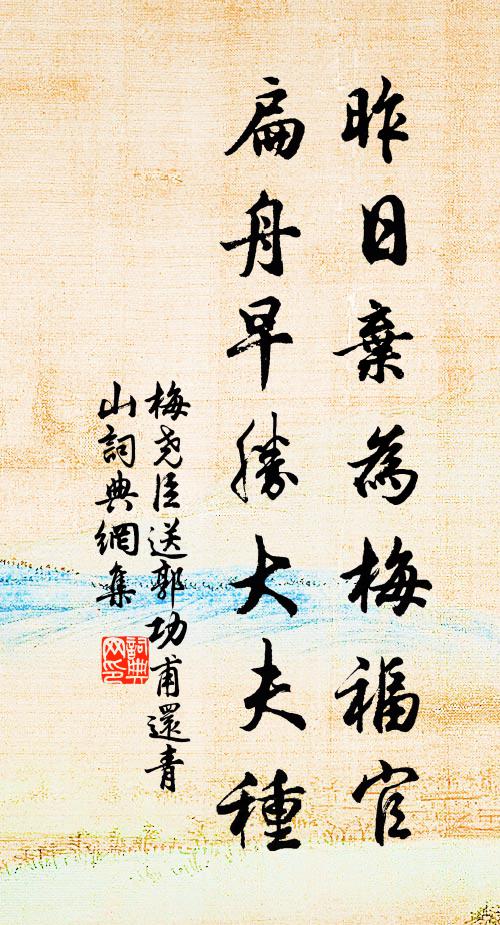 昨日棄為梅福官
扁舟早勝大夫種
梅尧臣送郭功甫還青
山詞典網集
詞典
网印